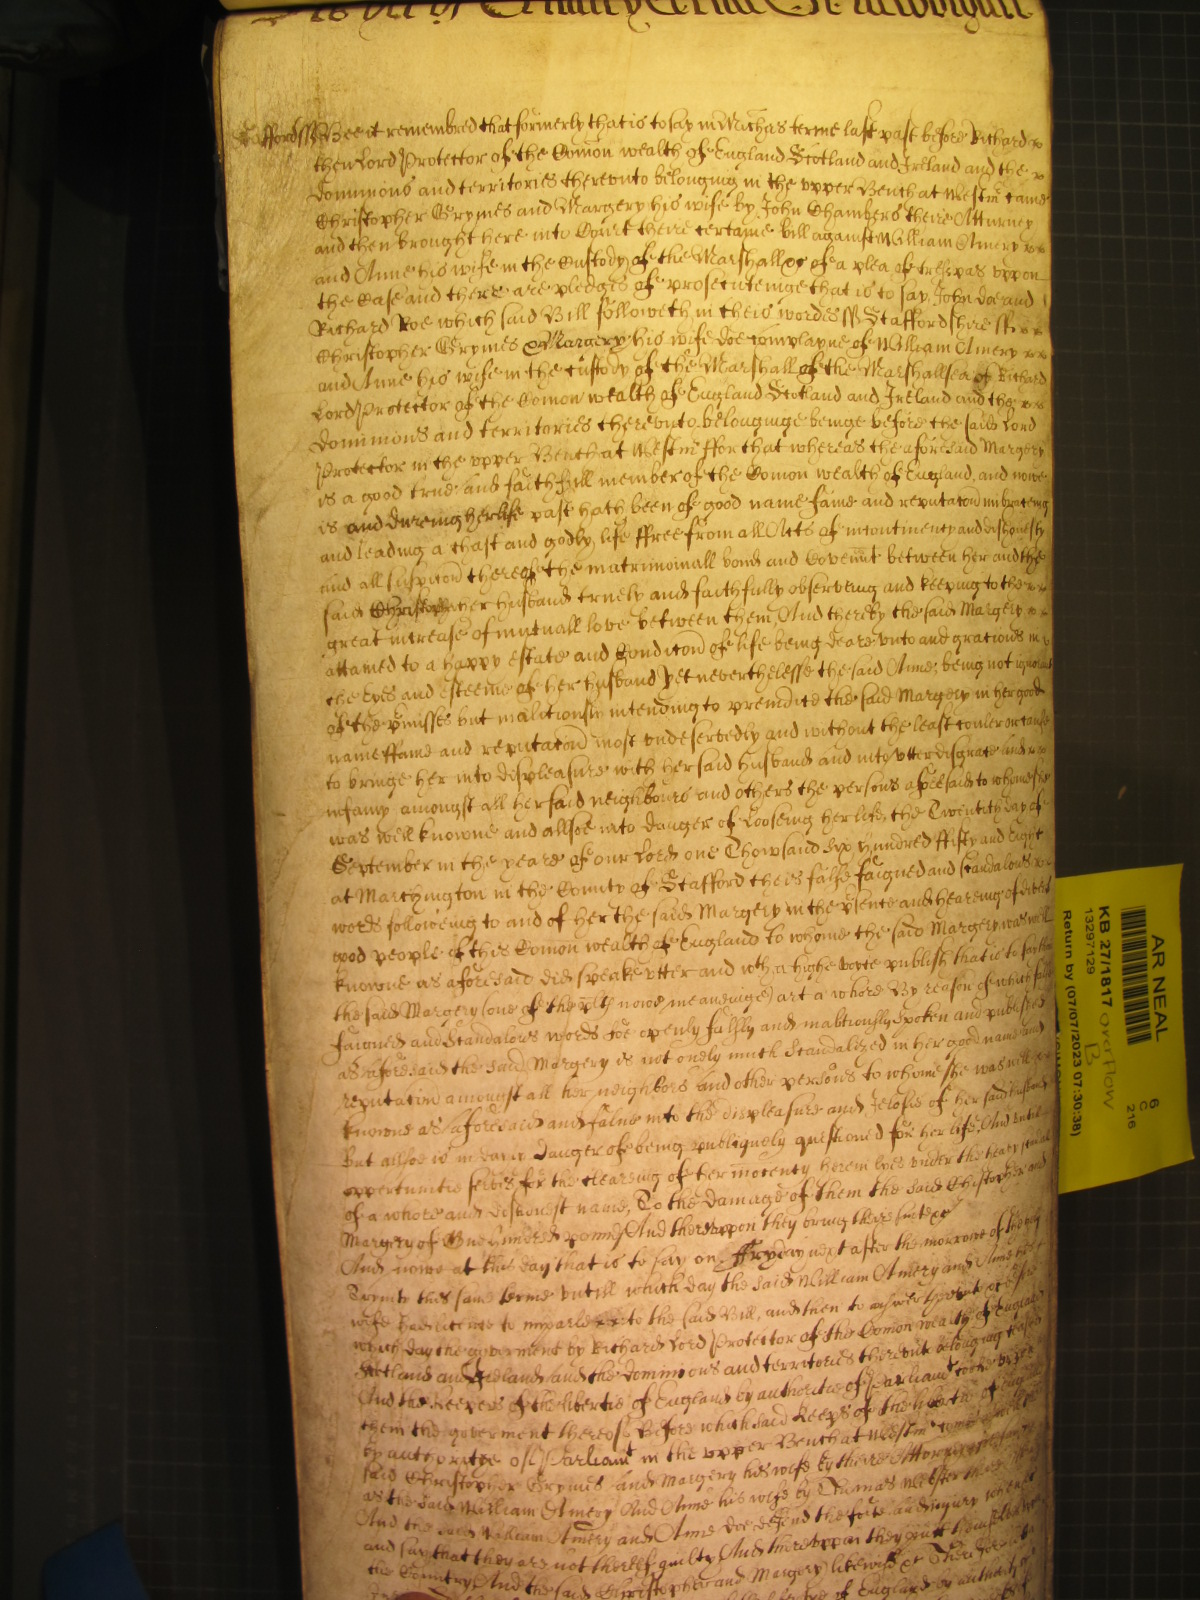 Staffordss Bee it remembred that formerly that is to say in Michas terme last past before Richard
then Lord Protector of the Comon wealth of England Scotland and Ireland and the
Dominions and territories thereunto belonging in the upper Bench at Westm came
Christopher Grymes and Margery his wife by John Chambers there Atturney
and then brought here into Court there certaine bill against William Amery
and Anne his wife in the Custody of the Marshall &c of a plea of trespas uppon
the Case and there are pledges of prosecuteinge that is to say John Doe and
Richard Roe which said Bill followeth in theis wordes ss Staffordshire ss
Christopher Grymes & Margery his wife doe complayne of William Amery
and Anne his wife in the custody of the Marshall of the Marshallsea of Richard
Lord Protector of the Comon wealth of England Scotland and Ireland and the
Dominions and territories thereunto belonginge beinge before the said Lord
Protector in the upper Bench at Westm ffor that whereas the aforesaid Margery
is a good true and faithfull member of the Comon wealth of England and nowe
is and dureing her life past hath been of good name fame and reputacon imbraceing
and leading a chast and godly life ffree from all Acts of incontinency and dishonesty
and all suspicon thereof the matrimoinall bond and Covennt between her and the
said Christopher her husband truely and faithfully observeing and keeping to the
great increase of mutuall love between them, And thereby the said Margery
attained to a happy estate and Condicon of life being deare unto and gracious in
the Eyes and esteeme of her husband Yet neverthelesse the said Anne being not ignorant
of the pmisses but malitiously intending to preiudice the said Margery in her good
name ffame and reputacon most undeservedly and without the least couler or cause
to bringe her into displeasure with her said husband and into utter disgrace and
infamy amongst all her said neighbours and others the persons aforesaid to whome she
was well knowne and allsoe into danger of Looseing her life, the Twentith day of
September in the yeare of our Lord one Thowsand six hundred ffifty and Eight
at Marchington in the County of Stafford theis false faigned and scandalous
words followeing to and of her the said Margery in the psence and heareing of divers
good people of this Comon wealth of England to whome the said Margery was well
knowne as aforesaid did speake utter and wth a highe voice publish that is to say thou
the said Margery (one of the plts nowe meaneinge) art a whore By reason of which false
faigned and Scandalous words soe openly falsly and malitiously spoken and published
as aforesaid the said Margery is not onely much Scandalized in her good name and
reputacon amongst all her neighbors and other persons to whome she was well
knowne as aforesaid and falne into the displeasure and Jelosie of her said husband
But allsoe is in dayly danger of being publiquely questioned for her life, And until
oppertunitie serves for the clearing of her inocency herein lyes under the heavy scandal
of a whore and dishonest name, To the damage of them the said Christopher and
Margery of One hundred pounds And thereuppon they bring there suite &c
And nowe at this day that is to say on ffryday next after the morrowe of the holy
Trinity this same terme untill which day the said William Amery and Anne his
wife had licence to imparle to the said Bill, and then to answer
which day the goverment by Richard Lord Protector of the Comon wealth of England
Scotland and Ireland and the dominions and territories thereunto belonging ceased
And the Keepers of the libertie of England by authoritie of Parliamt tooke uppon
them the goverment thereof Before which said Keeps of the libertie of England
by authoritee of Parliamt in the upper Bench at Westm come
said Christopher Grymes and Margery his wife by there Attorney
as the said William Amery And Anne his wife by Thomas Webster there
And the said William Amery and Anne doe defend the force and iniury when &c
and say that they are not thereof guilty And thereuppon they putt themselves
the Country, And the said Christopher and Margery likewise &c Therefore
of England by authority
AR NEAL
KB 27/1817 overflow
B
13297129
Return by (07/07/2023 07:30:38)
6
C
216